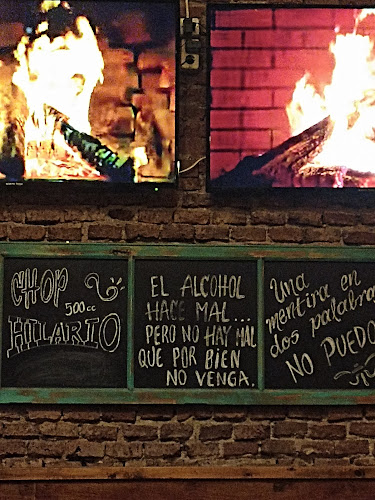 CHOP
500cc
HILARIO
EL ALCOHOL
HACE MAL...
PERO NO HAY MAL
QUE POR BIEN
NO VENGA.
Una
mentira en
dos palabras
NO PUEDO